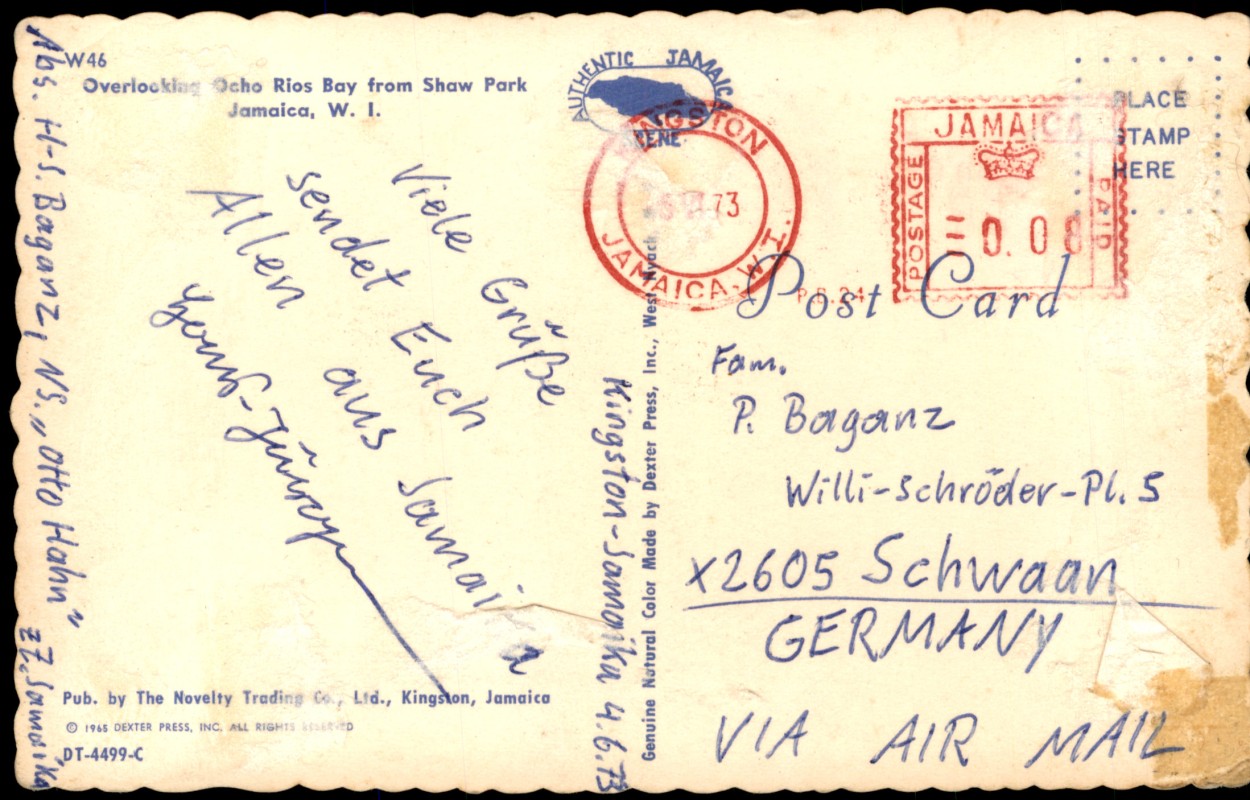 W46
Overlooking Ocho Rios Bay from Shaw Park
Jamaica, W. I.
AUTHENTIC JAMAICA
SCENE
KINGSTON
73
JAMAICA. W.I.
JAMAICA
POSTAGE
PAID
=0.08
P.B.24
PLACE
STAMP
HERE
Post Card
Viele Grüße
sendet Euch
Allen aus Jamaika
Hans-Jürgen
Abs. H-J. Baganz, NS. „Otto Hahn" zZ. Jamaika
Kingston-Jamaika 4.6.73
Genuine Natural Color Made by Dexter Press, Inc., West Nyack
Fam.
P. Baganz
Willi-Schröder-Pl. 5
x2605 Schwaan
GERMANY
VIA AIR MAIL
Pub. by The Novelty Trading Co., Ltd., Kingston, Jamaica
© 1965 DEXTER PRESS, INC. ALL RIGHTS RESERVED
DT-4499-C